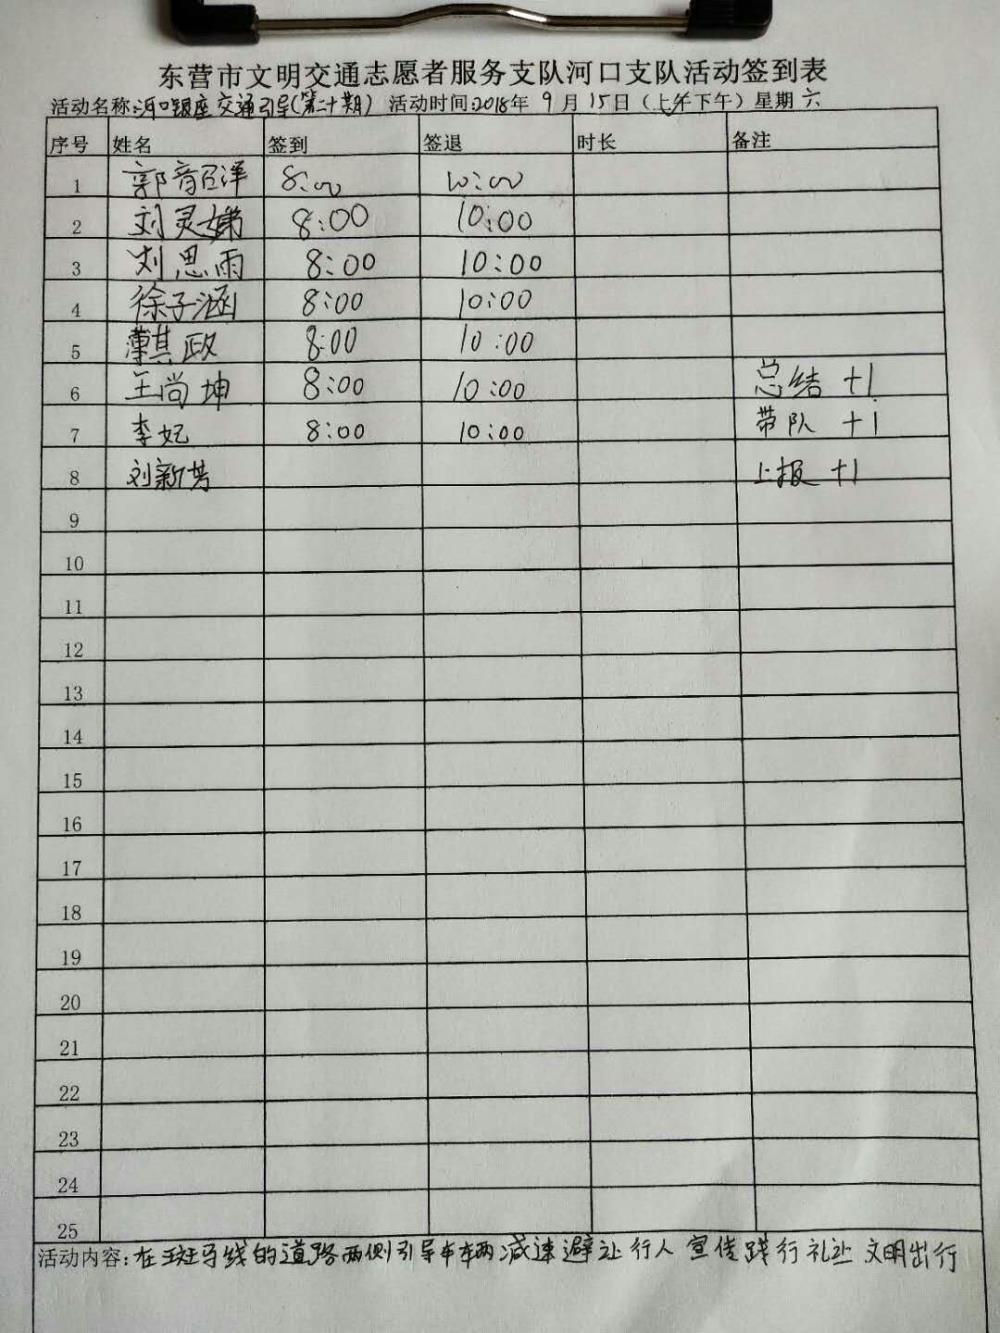 东营市文明交通志愿者服务支队河口支队活动签到表
活动名称:河口银座交通引导(第二十期) 活动时间:2018年 9月15日(上午下午)星期六
序号 姓名 签到 签退 时长 备注
1 郭音洋 8:00 10:00
2 刘灵娣 8:00 10:00
3 刘思雨 8:00 10:00
4 徐子涵 8:00 10:00
5 其政 8:00 10:00
6 王尚坤 8:00 10:00 总结 +1
7 李妃 8:00 10:00 带队 +1
8 刘新芳 上报 +1
9
10
11
12
13
14
15
16
17
18
19
20
21
22
23
24
25
活动内容:在斑马线的道路两侧引导车辆减速避让行人 宣传践行礼让 文明出行